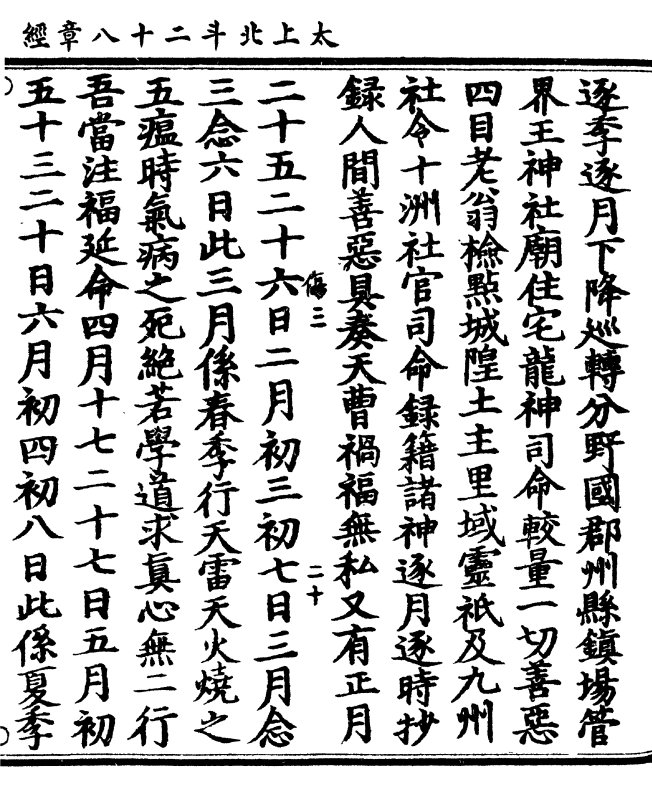 太上北斗二十八章經
逐季逐月下降巡轉分野國郡州縣鎮場管
界王神社廟住宅龍神司命較量一切善惡
四目老翁檢點城隍土主里域靈祇及九州
社令十洲社官司命録籍諸神逐月逐時抄
録人間善惡具奏天曹禍福無私又有正月
二十五二十六日二月初三初七日三月念
傷二
二十
三念六日此三月係春季行天雷天火燒之
五瘟時氣病之死絕若學道求真心無二行
吾當注福延命四月十七二十七日五月初
五十三二十日六月初四初八日此係夏季